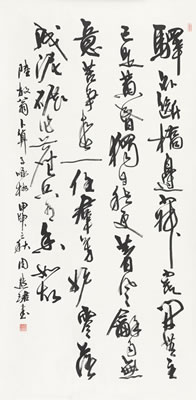 驛外斷橋邊寂寞開無主
已是黃昏獨自愁更著風龢雨無
意苦爭春一任群芳妒零落
成泥碾作塵只有香如故
陸放翁卜算子詠梅 甲申之秋 周書